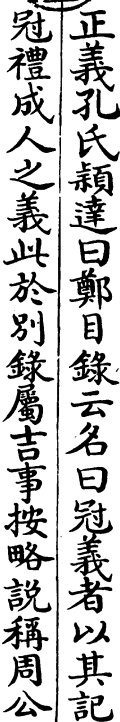 正義孔氏穎達曰鄭目錄云名曰冠義者以其記
冠禮成人之義此於別錄屬吉事按略説稱周公